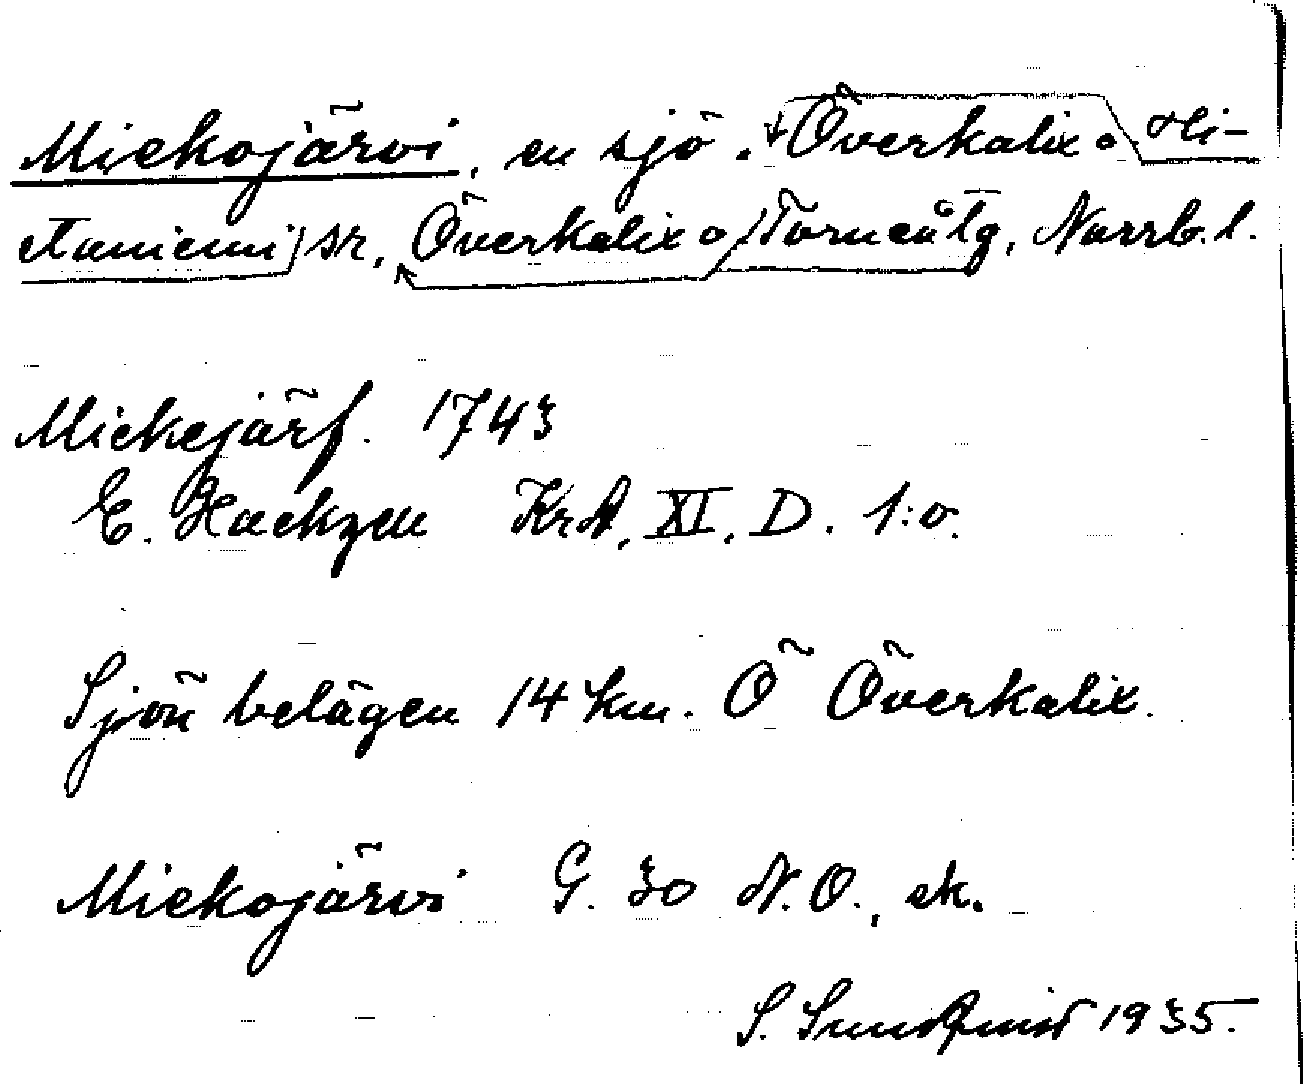 Miekojärvi, en sjö. Överkalix o Hi-
etaniemi sr, Överkalix o Torneå tg, Norrb. l.
Miekejärf. 1743
E. Hackzen KrA, XI, D. 1:o.
Sjön belägen 14 km. Ö Överkalix.
Miekojärvi G. 30 N.O., ek.
S. Sundqvist 1935.